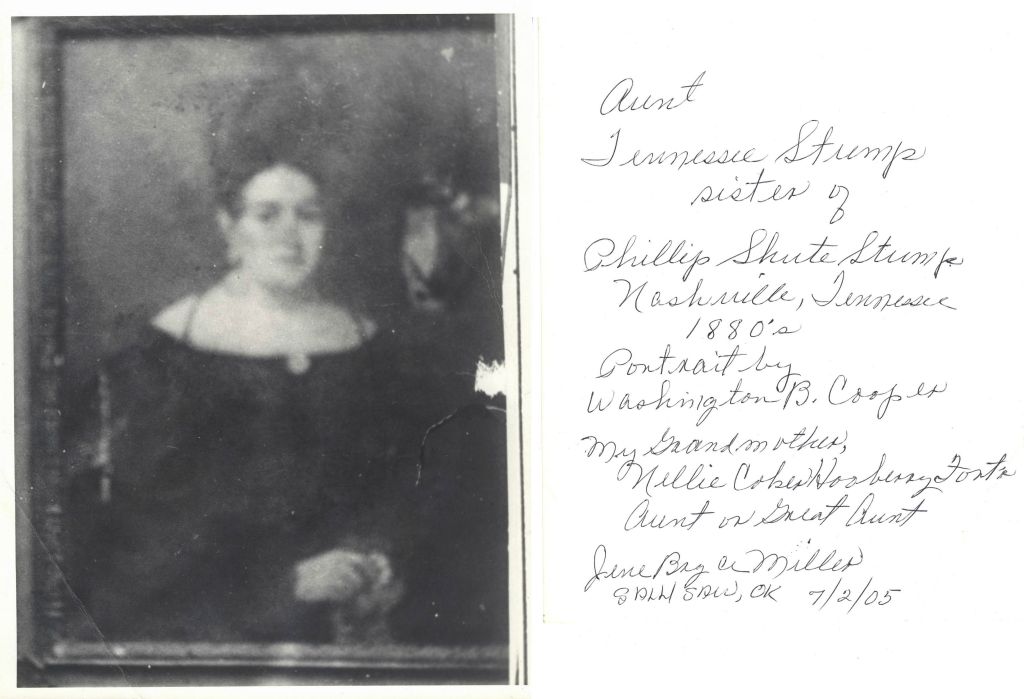 Aunt
Tennessee Stump
sister of
Phillip Shute Stump
Nashville, Tennessee
1880's
Portrait by
Washington B. Cooper
My Grandmother,
Nellie Coker Fort's
Aunt or Great Aunt
Miller
OK 7/2/05